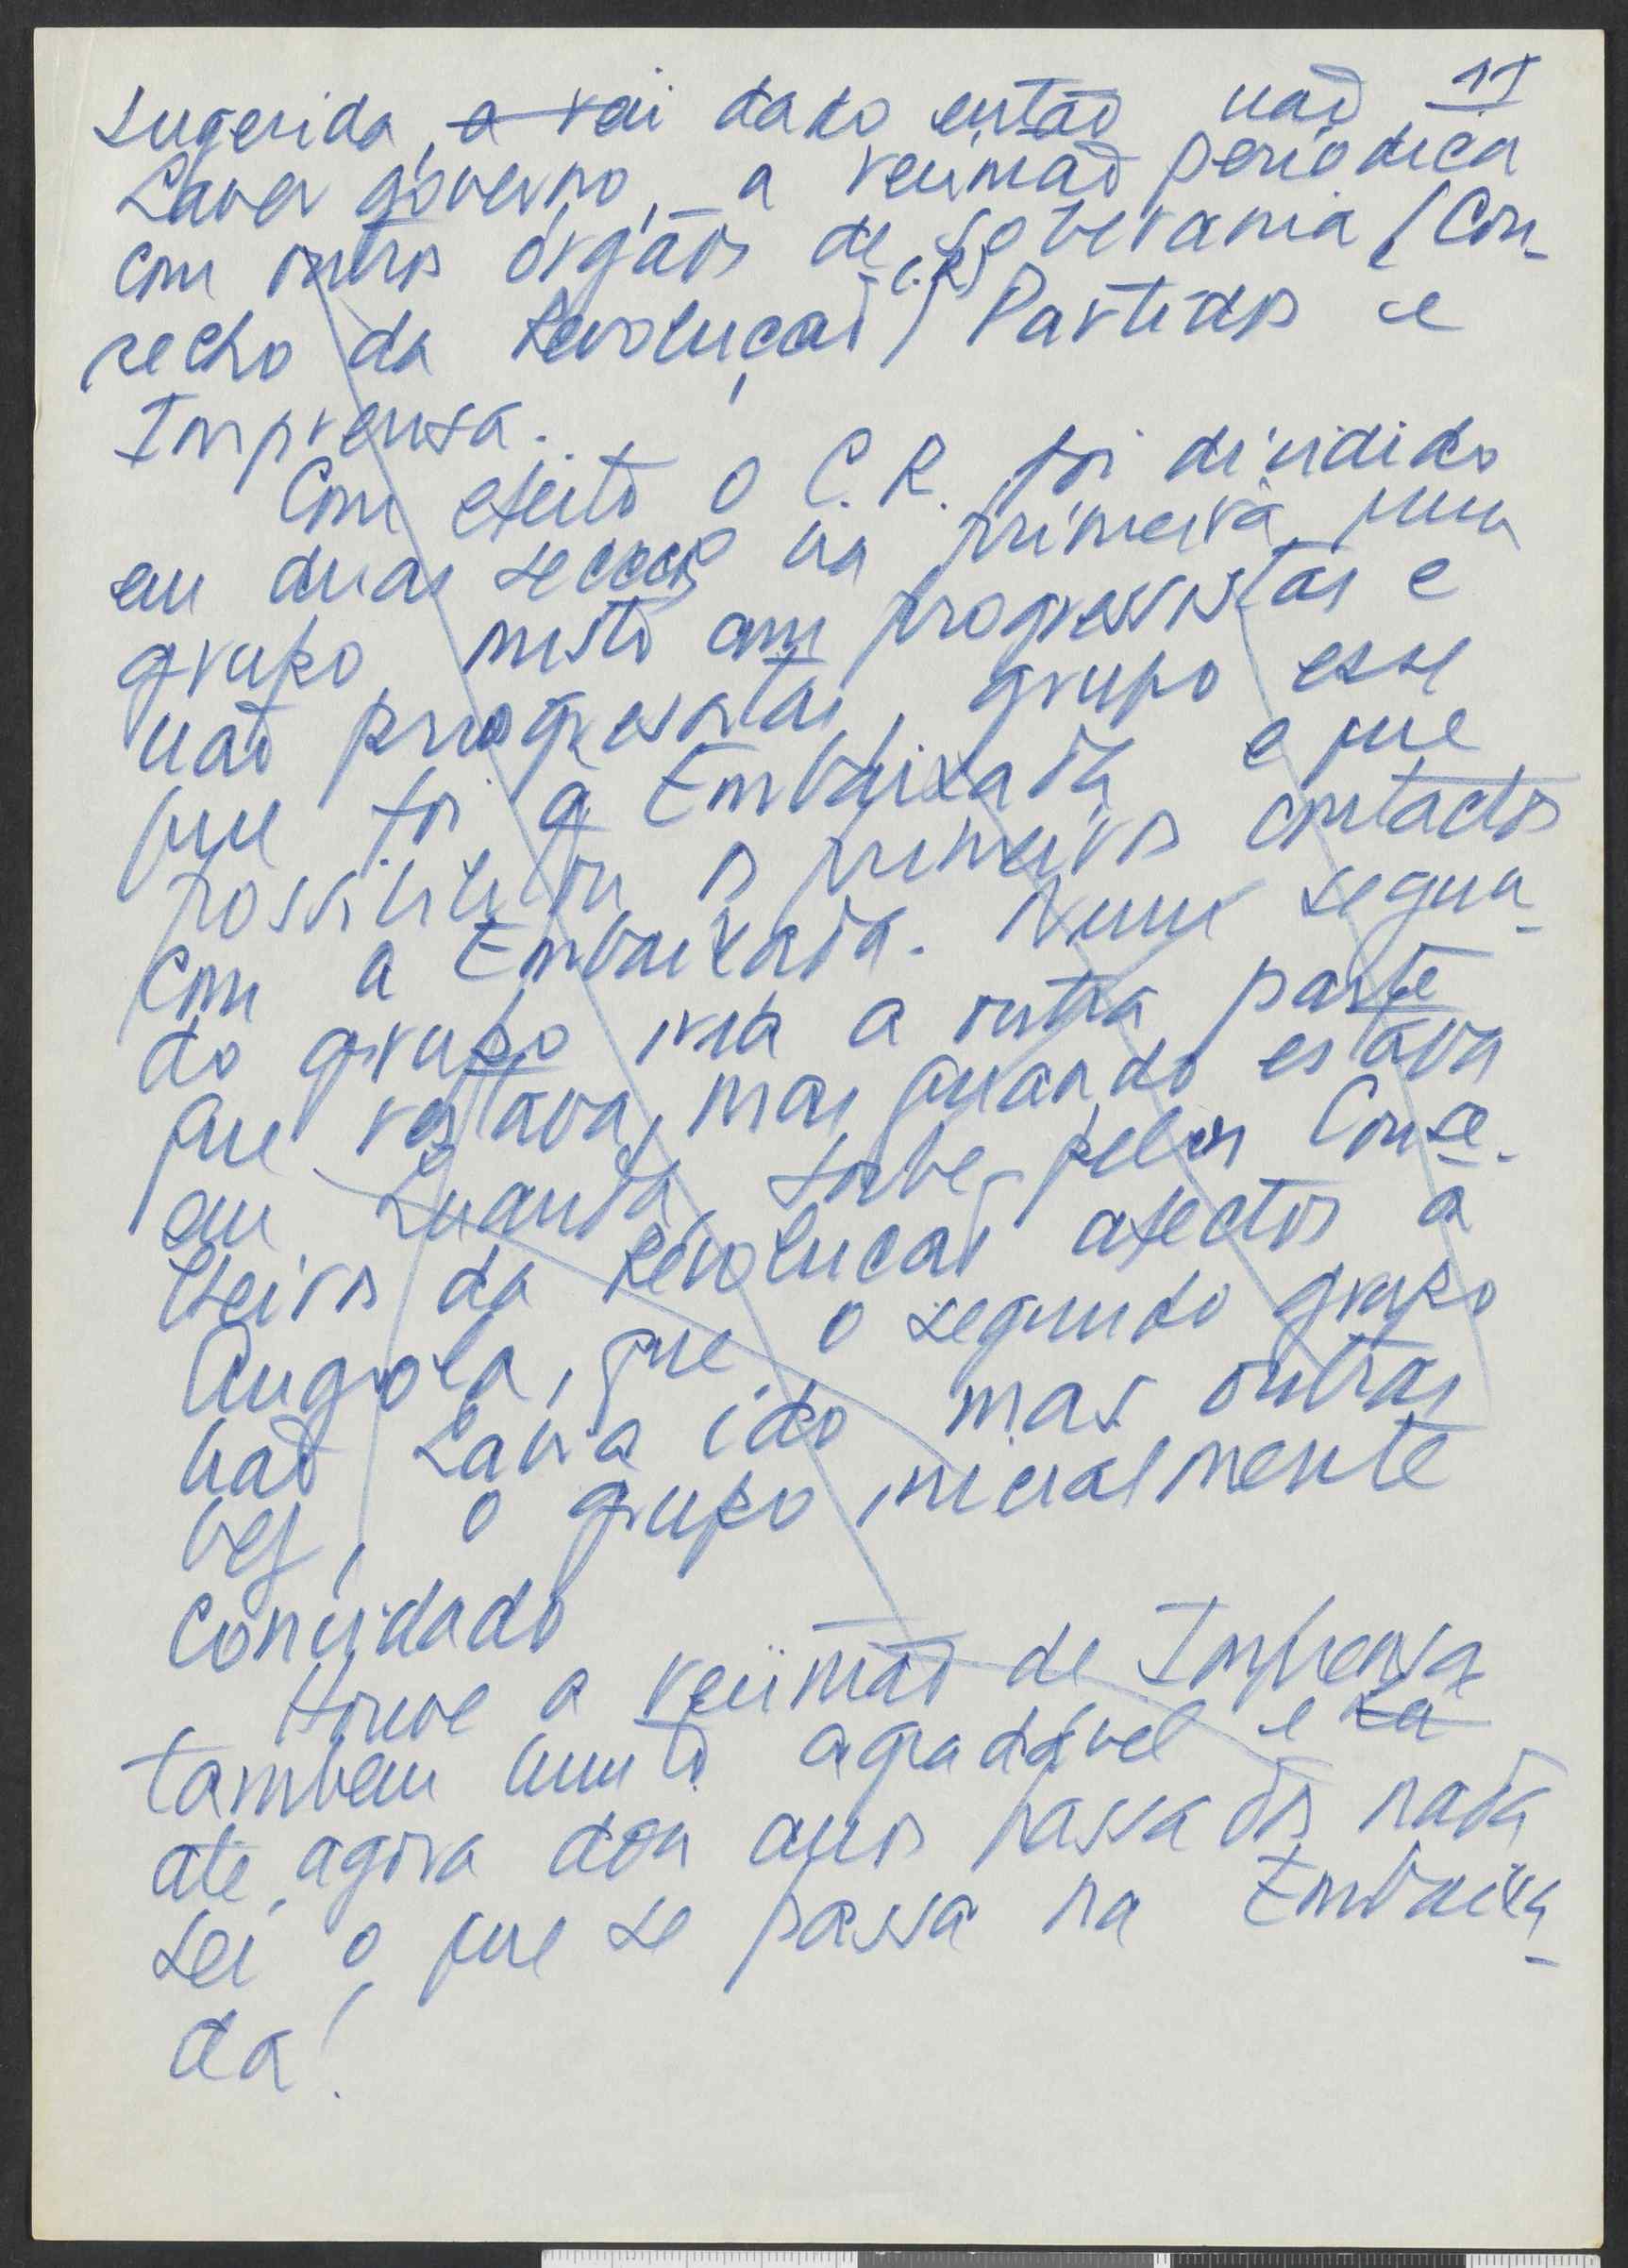 11
sugerida, a rei dado então não
haver governo, a reunião periódica
com outros órgãos de soberania (Con-
selho da Revolução - C.R) Partidos e
Imprensa.
Com efeito o C.R. foi dividido
em duas secções na primeira, num
grupo misto com progressistas e
não progressistas, grupo esse
que foi à Embaixada e que
possibilitou os primeiros contactos
com a Embaixada. Num segun-
do grupo iria a outra parte
que restava, mas quando estava
em Luanda soube pelos Conse-
lheiros da Revolução afectos a
Angola, que o segundo grupo
não havia ido mas outra
vez, o grupo inicialmente
convidado
Houve a reunião de Imprensa
também muito agradável e
até agora dois anos passados nada
sei o que se passa na Embaixa-
da!